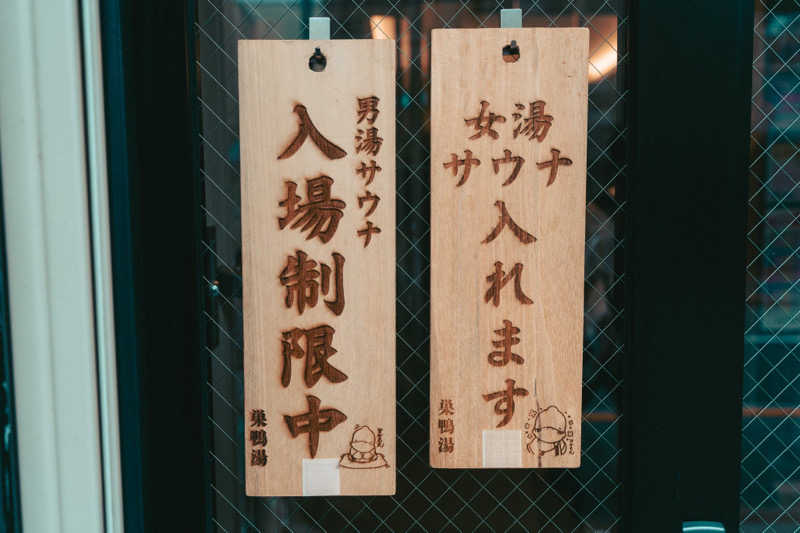 男湯サウナ
入場制限中
巣鴨湯
女湯
サウナ
入れます
巣鴨湯